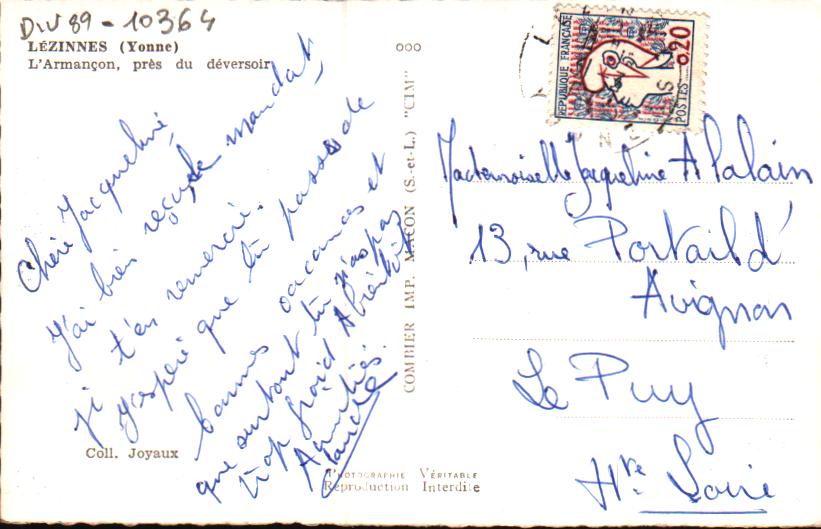 Div 89 - 10364
LÉZINNES (Yonne)
L'Armançon, près du déversoir
Chère Jacqueline,
j'ai bien reçu le mandat,
je t'en remercie.
J'espère que tu passes de
bonnes vacances et
que surtout tu n'as pas
trop froid. A bientôt
Amitiés.
Coll. Joyaux
COMBIER IMP. MACON (S.-et-L.) "CIM"
PHOTOGRAPHIE VÉRITABLE
Reproduction Interdite
REPUBLIQUE FRANÇAISE
0,20
POSTES
Mademoiselle Jacqueline
13, rue Portail d'
Avignon
Le Puy
Hte Loire